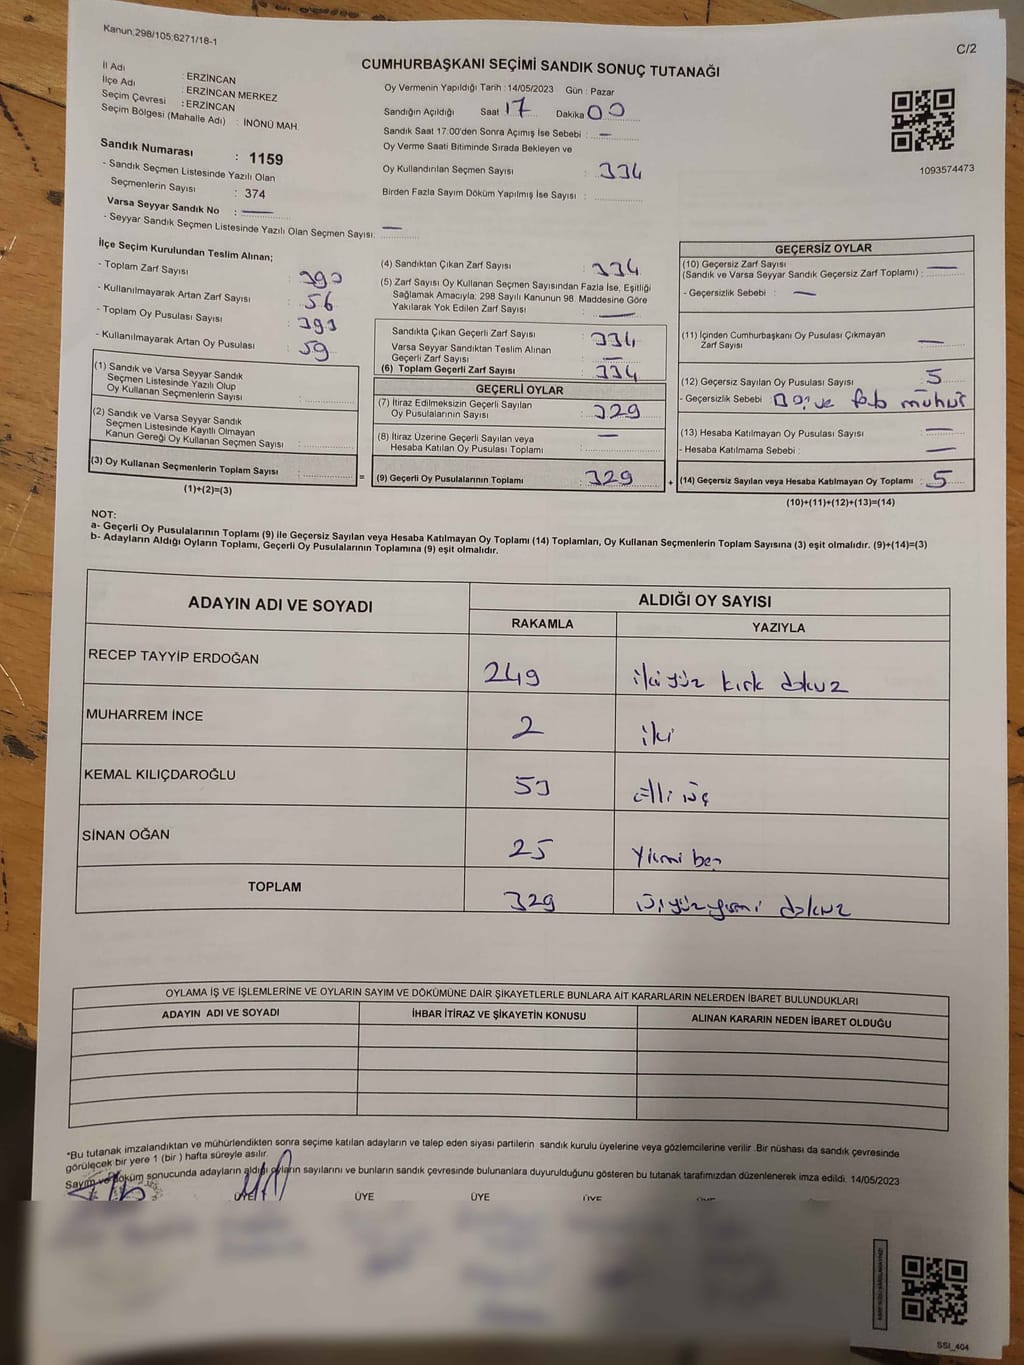 Kanun;298/105;6271/18-1
C/2
CUMHURBAŞKANI SEÇİMİ SANDIK SONUÇ TUTANAĞI
İl Adı : ERZİNCAN
İlçe Adı : ERZİNCAN MERKEZ
Seçim Çevresi : ERZİNCAN
Seçim Bölgesi (Mahalle Adı) : İNÖNÜ MAH.
Sandık Numarası : 1159
- Sandık Seçmen Listesinde Yazılı Olan
Seçmenlerin Sayısı : 374
Varsa Seyyar Sandık No : —
- Seyyar Sandık Seçmen Listesinde Yazılı Olan Seçmen Sayısı: —
Oy Vermenin Yapıldığı Tarih : 14/05/2023 Gün : Pazar
Sandığın Açıldığı Saat 17 Dakika 00
Sandık Saat 17:00'den Sonra Açımış İse Sebebi : —
Oy Verme Saati Bitiminde Sırada Bekleyen ve
Oy Kullandırılan Seçmen Sayısı : 334
Birden Fazla Sayım Döküm Yapılmış İse Sayısı :
1093574473
İlçe Seçim Kurulundan Teslim Alınan;
- Toplam Zarf Sayısı : 390
- Kullanılmayarak Artan Zarf Sayısı : 56
- Toplam Oy Pusulası Sayısı : 393
- Kullanılmayarak Artan Oy Pusulası : 59
(1) Sandık ve Varsa Seyyar Sandık
Seçmen Listesinde Yazılı Olup
Oy Kullanan Seçmenlerin Sayısı :
(2) Sandık ve Varsa Seyyar Sandık
Seçmen Listesinde Kayıtlı Olmayan
Kanun Gereği Oy Kullanan Seçmen Sayısı :
(3) Oy Kullanan Seçmenlerin Toplam Sayısı : =
(1)+(2)=(3)
(4) Sandıktan Çıkan Zarf Sayısı : 334
(5) Zarf Sayısı Oy Kullanan Seçmen Sayısından Fazla İse, Eşitliği
Sağlamak Amacıyla, 298 Sayılı Kanunun 98. Maddesine Göre
Yakılarak Yok Edilen Zarf Sayısı : —
Sandıkta Çıkan Geçerli Zarf Sayısı : 334
Varsa Seyyar Sandıktan Teslim Alınan
Geçerli Zarf Sayısı : —
(6) Toplam Geçerli Zarf Sayısı : 334
GEÇERLİ OYLAR
(7) İtiraz Edilmeksizin Geçerli Sayılan
Oy Pusulalarının Sayısı : 329
(8) İtiraz Üzerine Geçerli Sayılan veya
Hesaba Katılan Oy Pusulası Toplamı : —
(9) Geçerli Oy Pusulalarının Toplamı : 329 +
GEÇERSİZ OYLAR
(10) Geçersiz Zarf Sayısı : —
(Sandık ve Varsa Seyyar Sandık Geçersiz Zarf Toplamı) :
- Geçersizlik Sebebi : —
(11) İçinden Cumhurbaşkanı Oy Pusulası Çıkmayan
Zarf Sayısı : —
(12) Geçersiz Sayılan Oy Pusulası Sayısı : 5
- Geçersizlik Sebebi : Boş ve mühür
(13) Hesaba Katılmayan Oy Pusulası Sayısı : —
- Hesaba Katılmama Sebebi : —
(14) Geçersiz Sayılan veya Hesaba Katılmayan Oy Toplamı : 5
(10)+(11)+(12)+(13)=(14)
NOT:
a- Geçerli Oy Pusulalarının Toplamı (9) ile Geçersiz Sayılan veya Hesaba Katılmayan Oy Toplamı (14) Toplamları, Oy Kullanan Seçmenlerin Toplam Sayısına (3) eşit olmalıdır. (9)+(14)=(3)
b- Adayların Aldığı Oyların Toplamı, Geçerli Oy Pusulalarının Toplamına (9) eşit olmalıdır.
ADAYIN ADI VE SOYADI
ALDIĞI OY SAYISI
RAKAMLA YAZIYLA
RECEP TAYYİP ERDOĞAN 249 iki yüz kırk dokuz
MUHARREM İNCE 2 iki
KEMAL KILIÇDAROĞLU 53 elli üç
SİNAN OĞAN 25 Yirmi beş
TOPLAM 329 üçyüzyirmi dokuz
OYLAMA İŞ VE İŞLEMLERİNE VE OYLARIN SAYIM VE DÖKÜMÜNE DAİR ŞİKAYETLERLE BUNLARA AİT KARARLARIN NELERDEN İBARET BULUNDUKLARI
ADAYIN ADI VE SOYADI İHBAR İTİRAZ VE ŞİKAYETİN KONUSU ALINAN KARARIN NEDEN İBARET OLDUĞU
*Bu tutanak imzalandıktan ve mühürlendikten sonra seçime katılan adayların ve talep eden siyasi partilerin sandık kurulu üyelerine veya gözlemcilerine verilir. Bir nüshası da sandık çevresinde
görülecek bir yere 1 (bir) hafta süreyle asılır.
Sayım ve döküm sonucunda adayların aldığı oyların sayılarını ve bunların sandık çevresinde bulunanlara duyurulduğunu gösteren bu tutanak tarafımızdan düzenlenerek imza edildi. 14/05/2023
ÜYE ÜYE ÜYE ÜYE
SSI_404